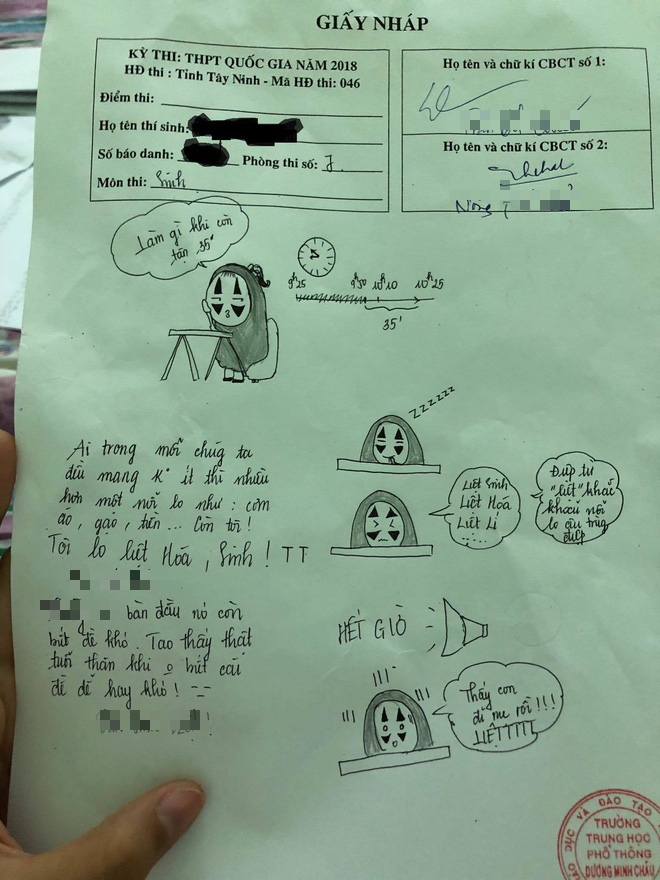 GIẤY NHÁP
KỲ THI: THPT QUỐC GIA NĂM 2018
HĐ thi : Tỉnh Tây Ninh - Mã HĐ thi: 046
Điểm thi:
Họ tên thí sinh:
Số báo danh: Phòng thi số: 7
Môn thi: Sinh
Họ tên và chữ kí CBCT số 1:
Họ tên và chữ kí CBCT số 2:
Nông T
Làm gì khi còn
tận 35'
9h25 9h50 10h10 10h25
35'
zzzzzz
Ai trong mỗi chúng ta
đều mang k° ít thì nhiều
hơn một nỗi lo như : cơm
áo, gạo, tiền ... Còn tôi !
Tôi lo liệt Hóa, Sinh ! TT
Liệt Sinh
Liệt Hóa
Liệt Lí
.....
Đúp tư
"liệt" khắc
khoải nỗi
lo âu trùng
điệp
bàn đầu nó còn
biết đề khó. Tao thấy thất
tuổi thân khi o biết cái
đề dễ hay khó ! --
HẾT GIỜ
Thấy con
đi mẹ rồi !!!
LIỆTTTTT
DỤC VÀ ĐÀO TẠO
TRƯỜNG
TRUNG HỌC
PHỔ THÔNG
DƯƠNG MINH CHÂU